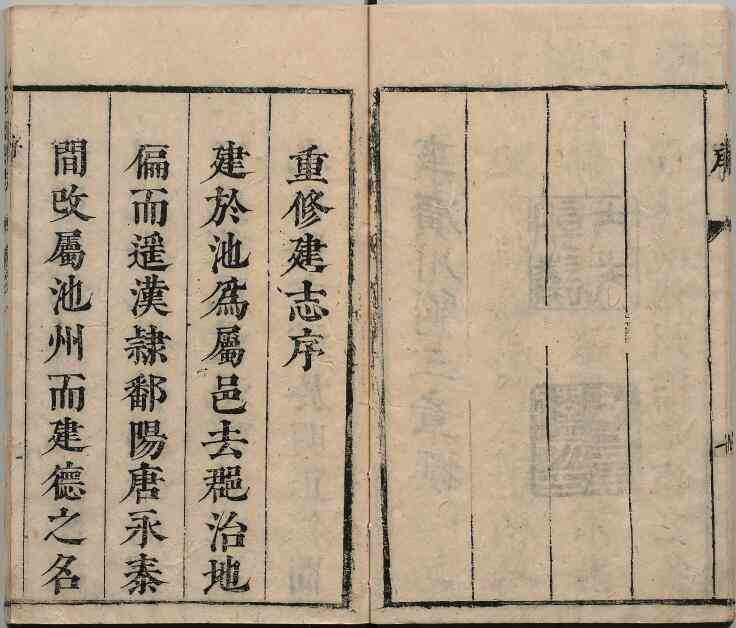 序
重修建志序
建於池爲屬邑去郡治地
偏而遥漢隸鄱陽唐永泰
間改屬池州而建德之名